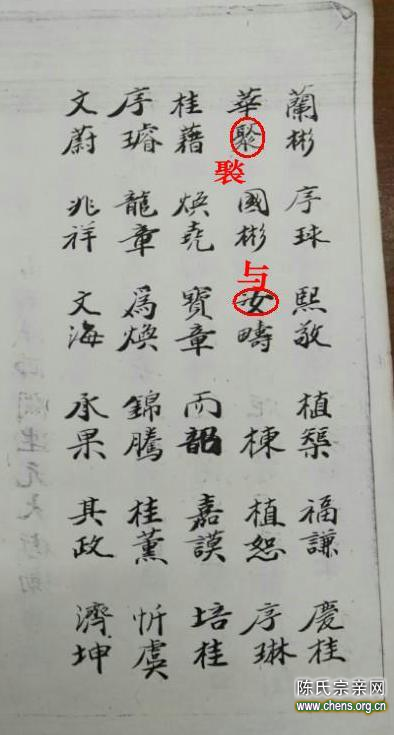 蘭彬 序珠 熙敬 植榘 福謙 慶桂
華 國彬 汝疇 棟 植恕 序琳
褧
与
桂藉 煥堯 寶章 而韶 嘉謨 培桂
序璿 龍章 爲煥 錦騰 桂薰 忻虞
文蔚 兆祥 文海 承果 其政 濟坤
陈氏宗亲网
www.chens.org